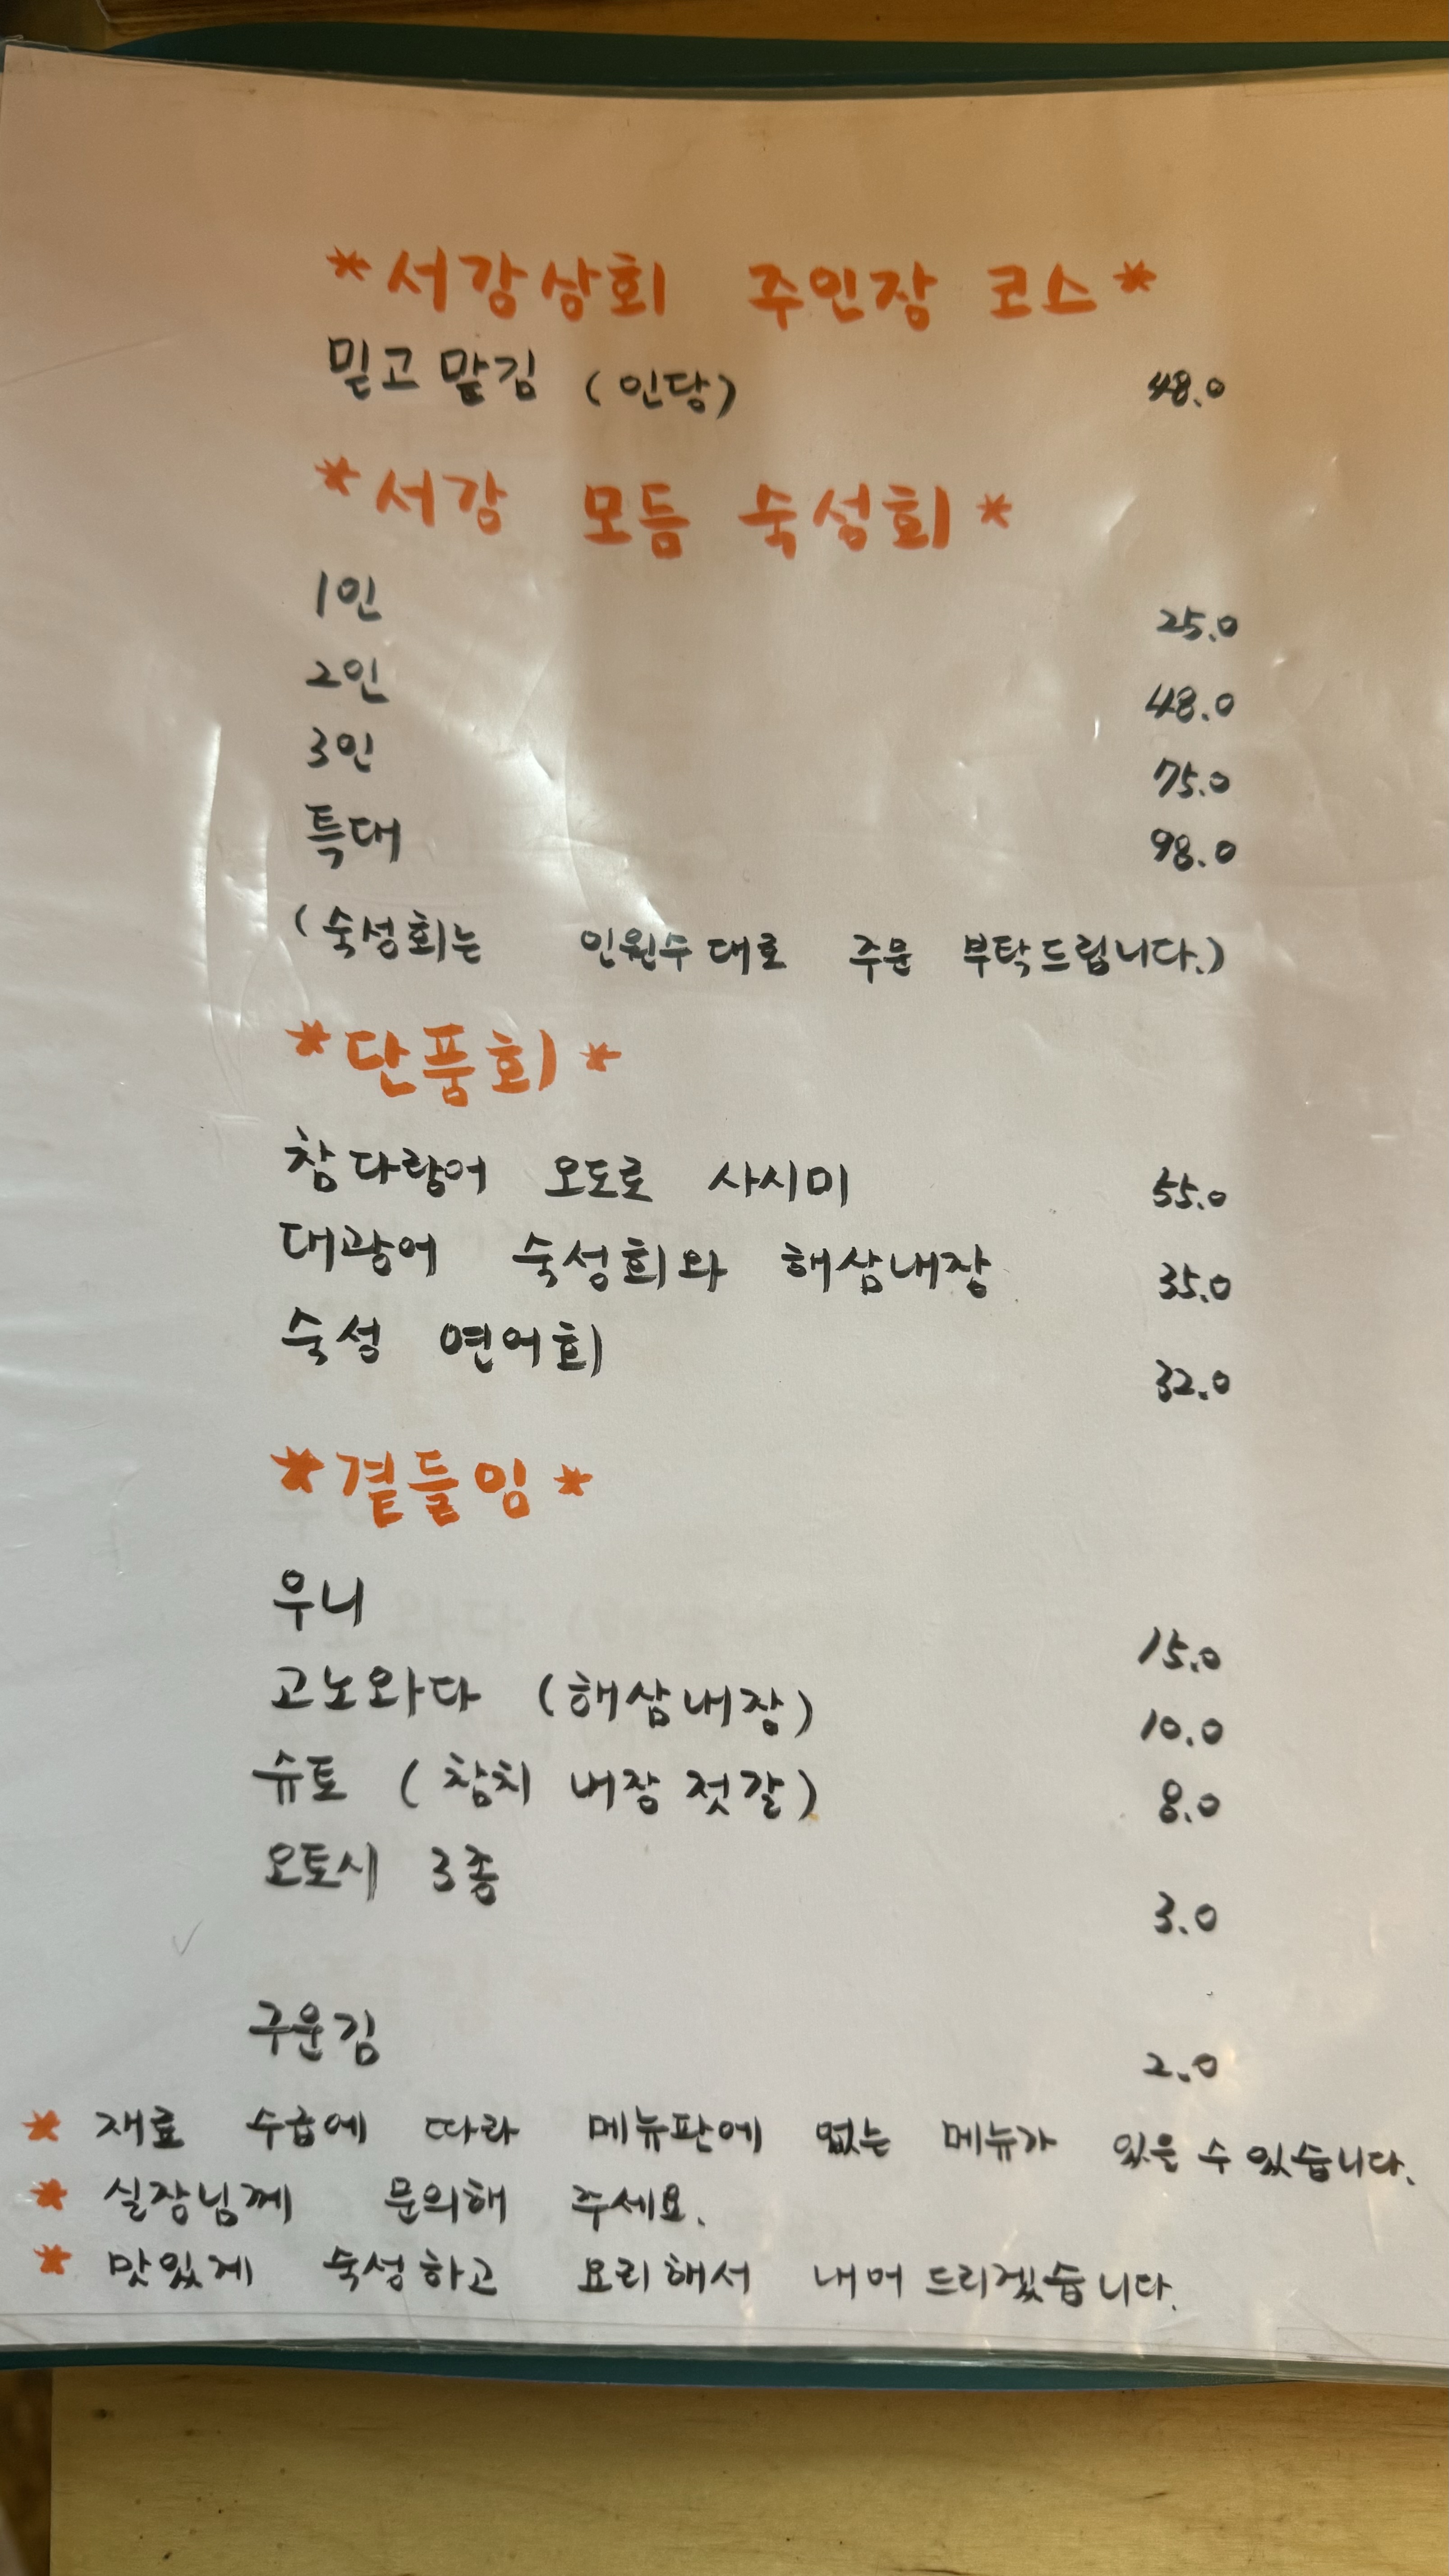 *서강상회 주인장 코스*
믿고 맡김 (인당) 48.0
*서강 모듬 숙성회*
1인 25.0
2인 48.0
3인 75.0
특대 98.0
(숙성회는 인원수대로 주문 부탁드립니다.)
*단품회*
참다랑어 오도로 사시미 55.0
대광어 숙성회와 해삼내장 35.0
숙성 연어회 32.0
*곁들임*
우니 15.0
고노와다 (해삼내장) 10.0
슈토 (참치 내장 젓갈) 8.0
오토시 3종 3.0
구운김 2.0
* 재료 수급에 따라 메뉴판에 없는 메뉴가 있을 수 있습니다.
* 실장님께 문의해 주세요.
* 맛있게 숙성하고 요리해서 내어 드리겠습니다.